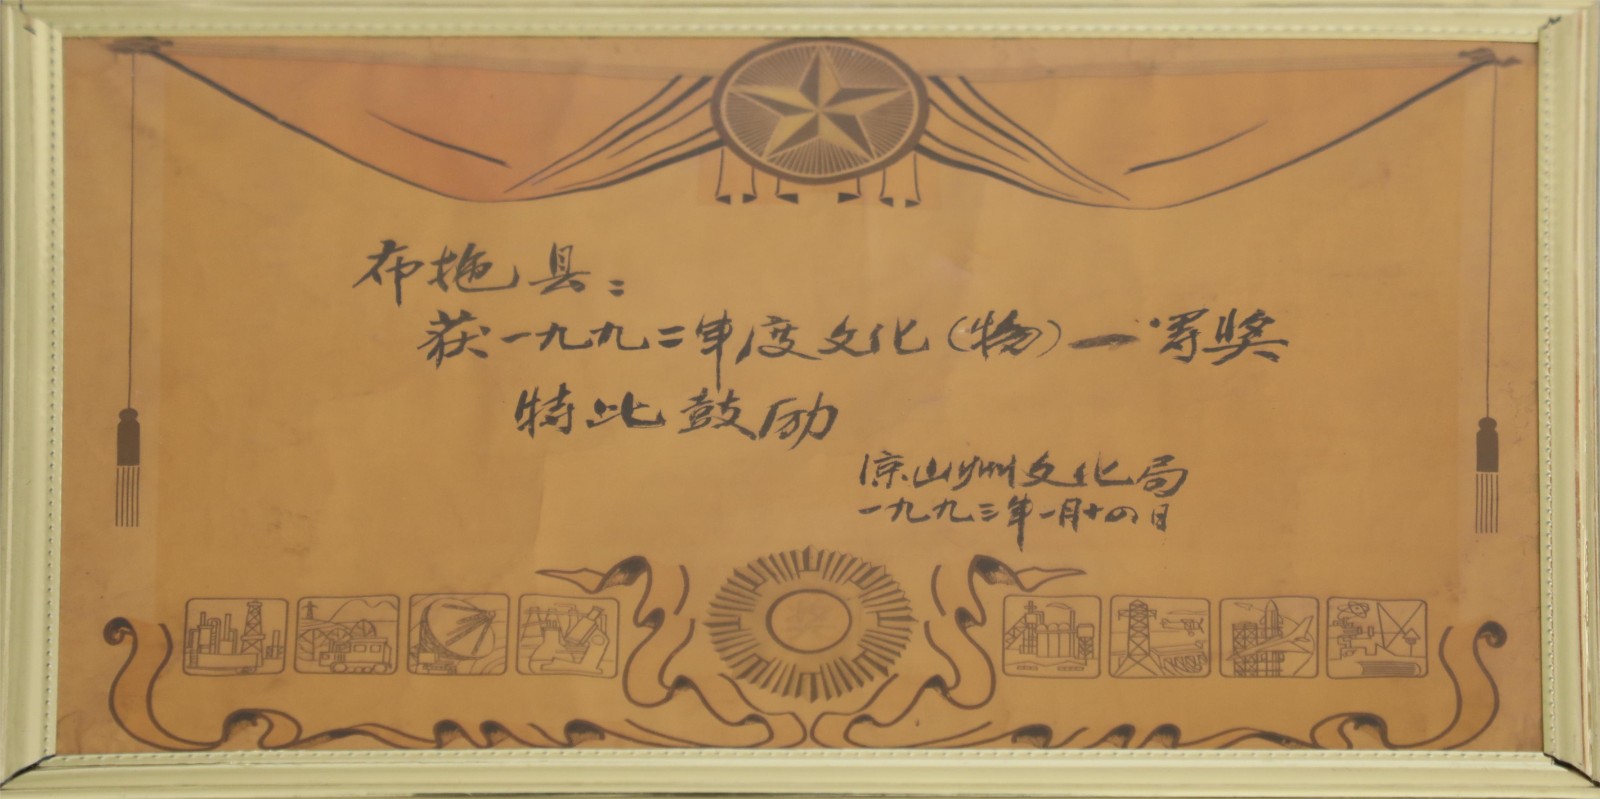 布拖县：
获一九九二年度文化（物）一等奖
特此鼓励
凉山州文化局
一九九三年一月十四日
奖